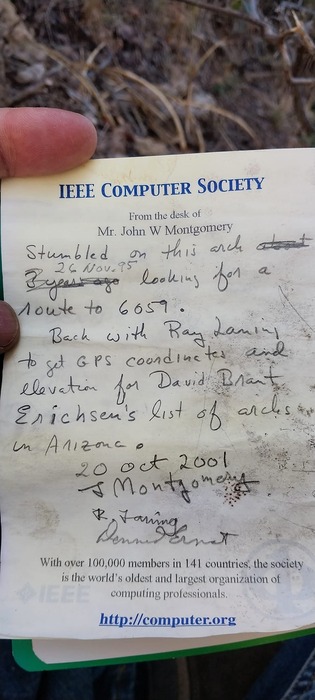 IEEE COMPUTER SOCIETY
From the desk of
Mr. John W Montgomery
Stumbled on this arch about
3 years ago looking for a
26 Nov. 95
route to 6059.
Back with Ray Laning
to get GPS coordinates and
elevation for David Brant
Erichsen's list of arches
in Arizona.
20 Oct 2001
J Montgomery
R. Laning
With over 100,000 members in 141 countries, the society
is the world's oldest and largest organization of
computing professionals.
IEEE
http://computer.org